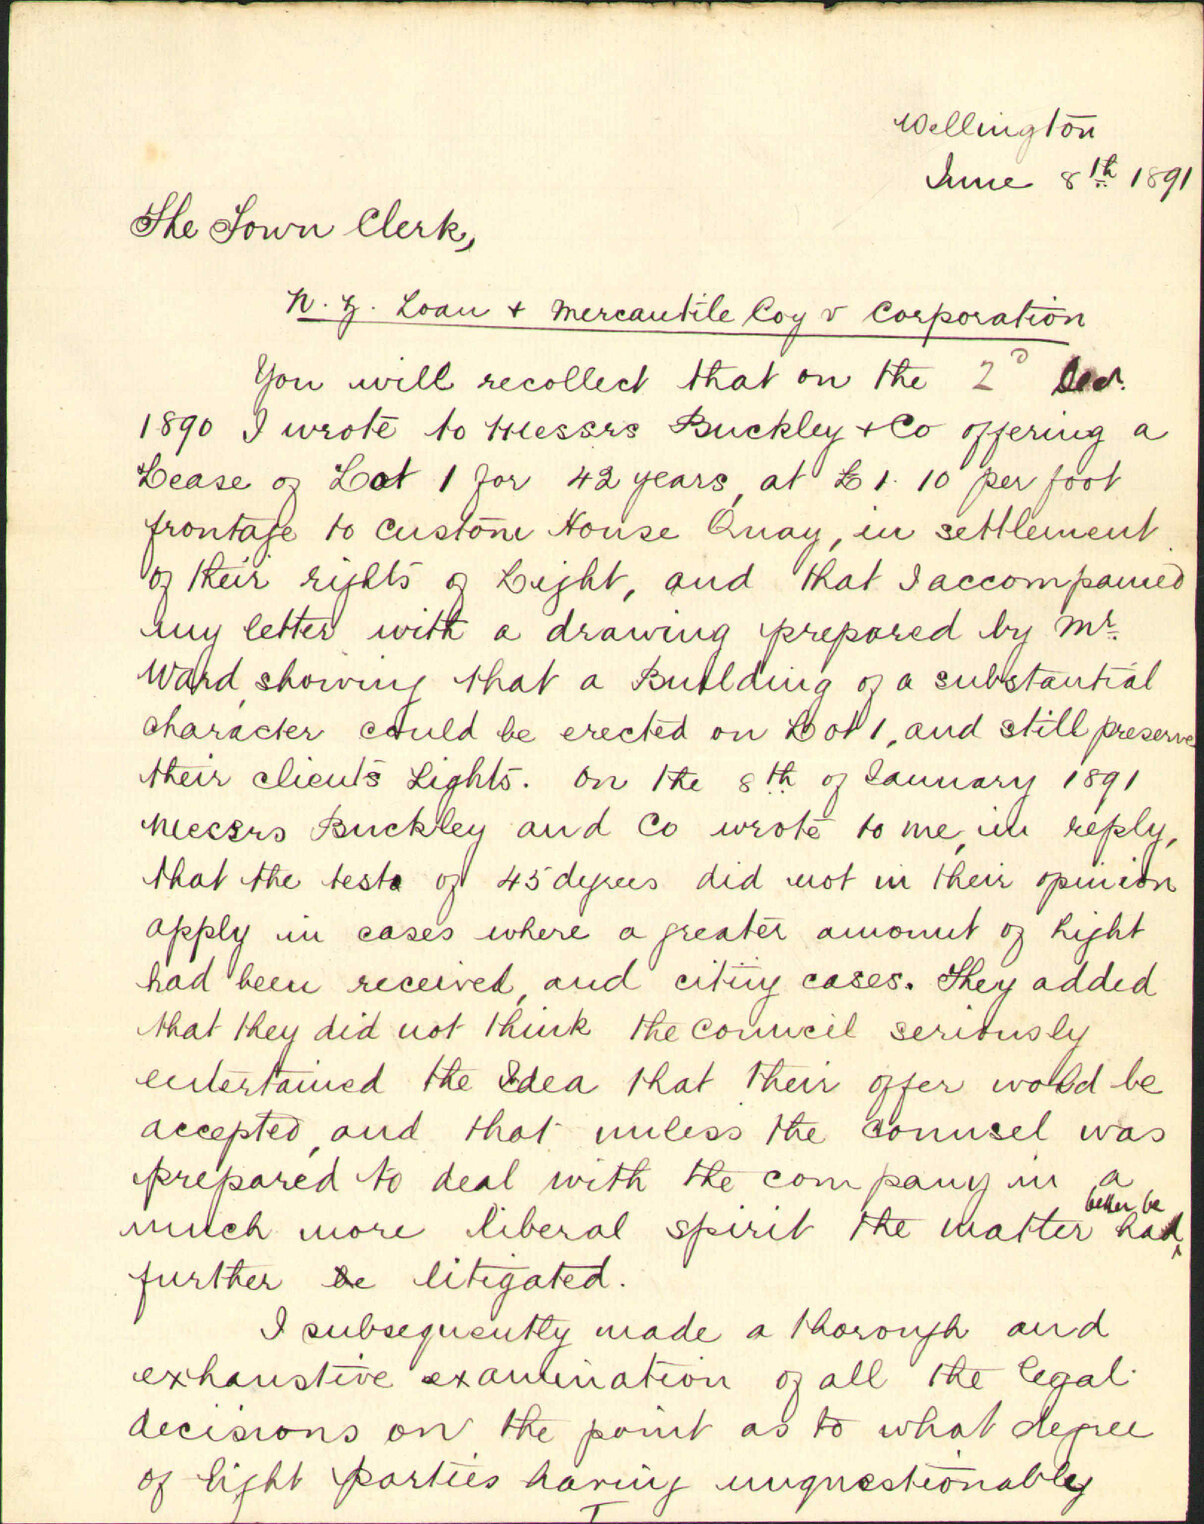 Wellington
June 8th 1891
The Town Clerk,
N. Z. Loan + Mercantile Coy v Corporation
You will recollect that on the 2d Decr.
1890 I wrote to Messrs Buckley + Co offering a
Lease of Lot 1 for 42 years, at £1.10 per foot
frontage to Custom House Quay, in settlement
of their rights of Light, and that I accompanied
my letter with a drawing prepared by Mr.
Ward, showing that a Building of a substantial
character could be erected on Lot 1, and still preserve
their clients Lights. On the 8th of January 1891
Messrs Buckley and Co wrote to me, in reply,
that the test of 45 degrees did not in their opinion
apply in cases where a greater amount of light
had been received, and citing cases. They added
that they did not think the Council seriously
entertained the Idea that their offer would be
accepted, and that unless the Counsel was
prepared to deal with the company in a
much more liberal spirit the matter had better be
further be litigated.
I subsequently made a thorough and
exhaustive examination of all the legal
decisions on the point as to what degree
of light parties having unquestionably